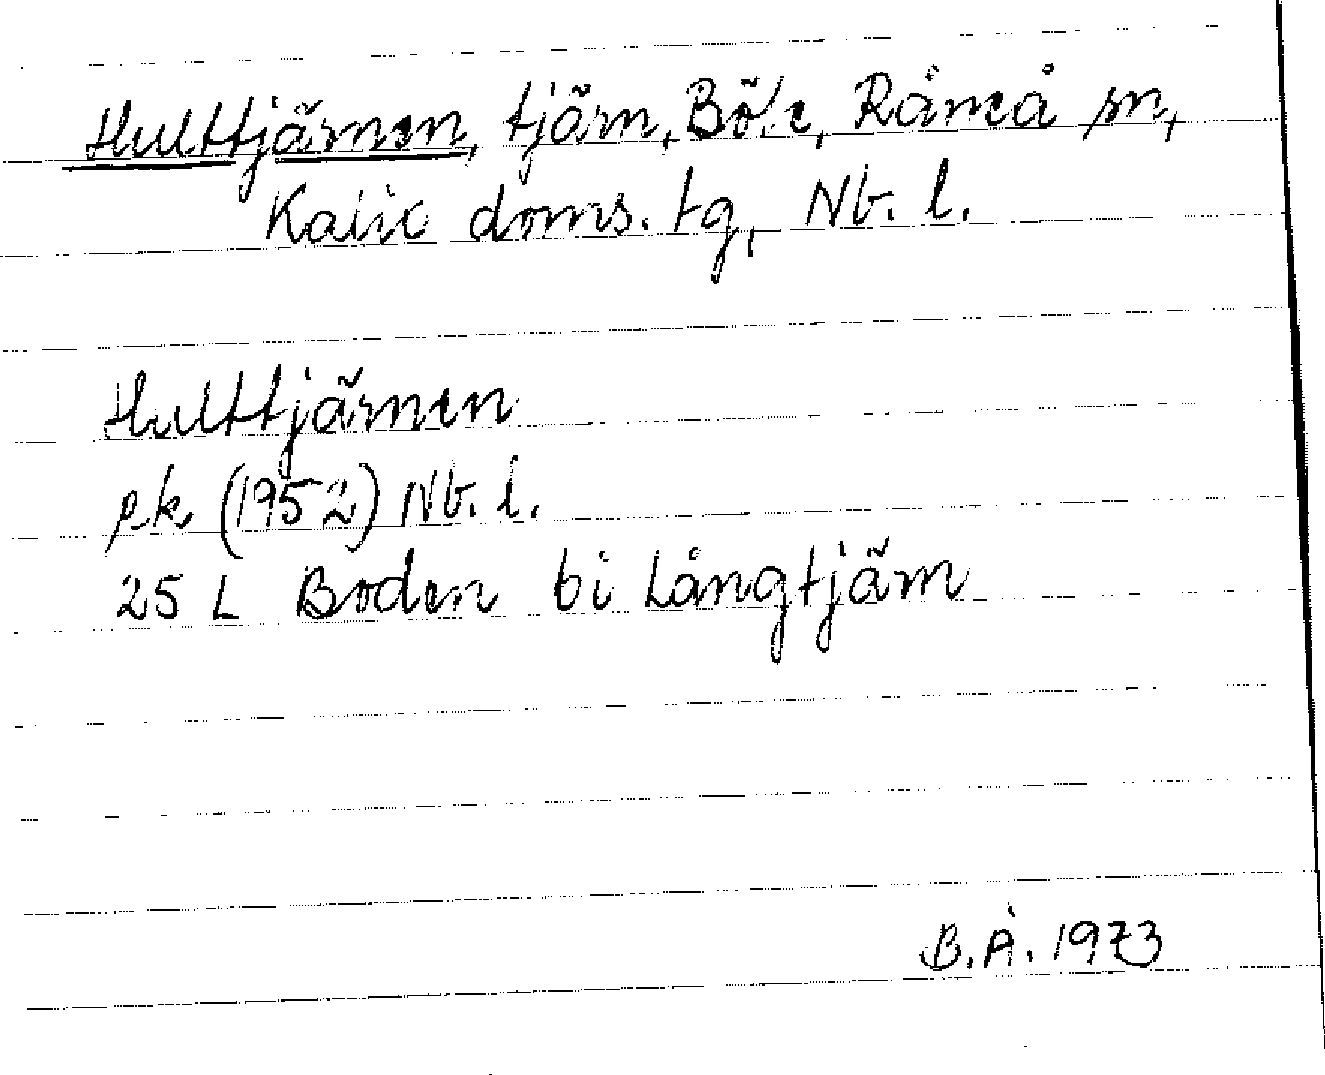 Hulttjärnen, tjärn, Böle, Råneå sn,
Kalix doms. tg, Nb. l.
Hulttjärnen
ek (1952) Nb. l.
25 L Boden bi Långtjärn
B.Å. 1973